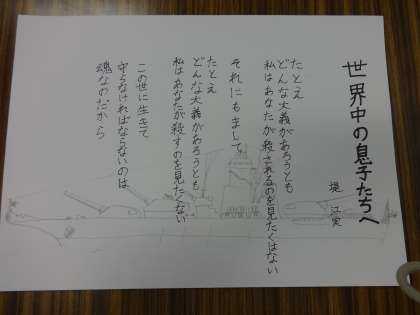 世界中の息子たちへ
堤 江実
たとえ
どんな大義があろうとも
私はあなたが殺されるのを見たくはない
それにもまして
たとえ
どんな大義があろうとも
私はあなたが殺すのを見たくない
この世に生きて
守らなければならないのは
魂なのだから